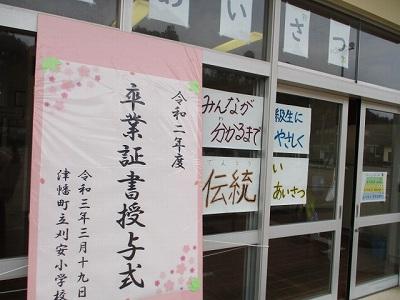 令和二年度
卒業証書授与式
令和三年三月十九日
津幡町立刈安小学校
あいさつ
みんなが
分かるまで
級生に
やさしく
でんとう
伝統
い
あいさつ